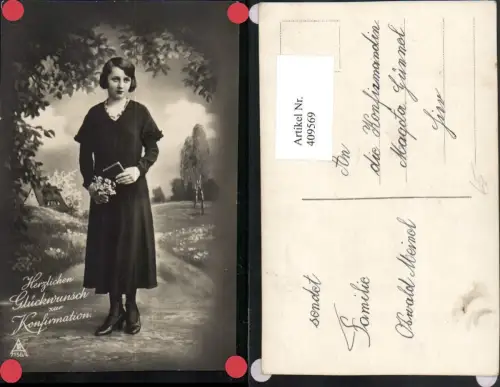 Herzlichen
Glückwunsch
zur
Konfirmation.
Artikel Nr.
409569
An
die Konfirmandin
Magda
Hier
sendet
Familie
Oswald Meinel